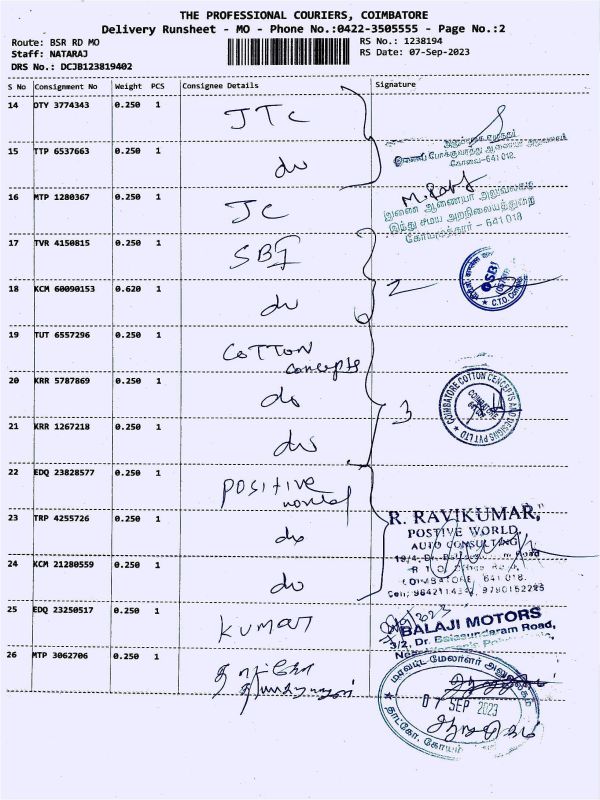 THE PROFESSIONAL COURIERS, COIMBATORE
Delivery Runsheet - MO - Phone No.:0422-3505555 - Page No.:2
Route: BSR RD MO
RS No.: 1238194
Staff: NATARAJ
RS Date: 07-Sep-2023
DRS No.: DCJB123819402
S No Consignment No Weight PCS Consignee Details Signature
14 DTY 3774343 0.250 1 JTC
15 TTP 6537663 0.250 1 do
கோவை-641 018.
16 MTP 1280367 0.250 1 JC
இணை ஆணையர் அலுவலகம்
இந்து சமய அறநிலையத்துறை
கோயமுத்தூர் - 641 018
17 TVR 4150815 0.250 1 SBI
2
SBI
18 KCM 60090153 0.620 1 do
19 TUT 6557296 0.250 1 COTTON
concepts
20 KRR 5787869 0.250 1 do
3
COIMBATORE COTTON CONCEPTS AND DESIGNS PVT LTD
COIMBATORE
21 KRR 1267218 0.250 1 do
22 EDQ 23828577 0.250 1 POSITIVE
world
R. RAVIKUMAR,
POSTIVE WORLD
AUTO CONSULTING
23 TRP 4255726 0.250 1 do
24 KCM 21280559 0.250 1 do
COIMBATORE 641 018.
25 EDQ 23250517 0.250 1 KUMAR
BALAJI MOTORS
3/2, Dr. Balasundaram Road,
26 MTP 3062706 0.250 1
மாவட்ட மேலாளர் அலுவலகம்
07 SEP 2023